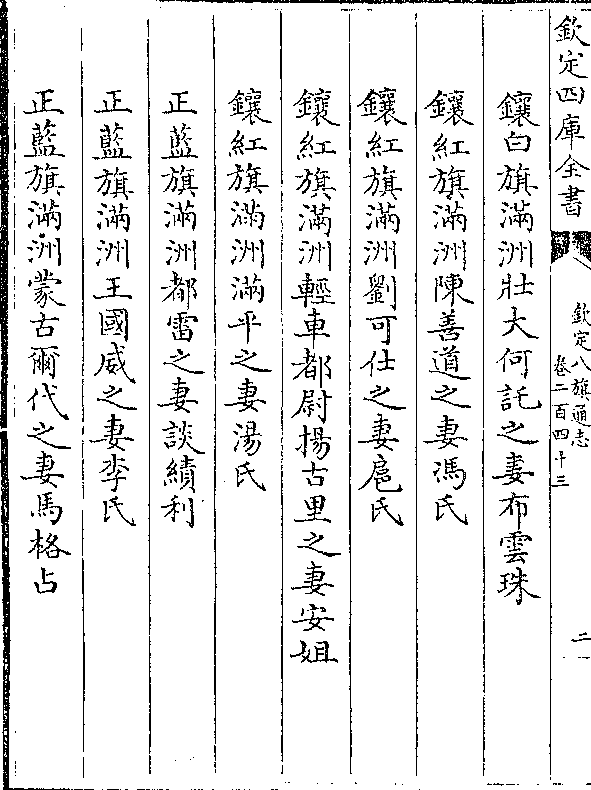 欽定四庫全書
欽定八旗通志
卷二百四十三
二
鑲白旗滿洲壯大何託之妻布雲珠
鑲紅旗滿洲陳善道之妻馮氏
鑲紅旗滿洲劉可仕之妻扈氏
鑲紅旗滿洲輕車都尉揚古里之妻安姐
鑲紅旗滿洲滿平之妻湯氏
正藍旗滿洲都雷之妻談績利
正藍旗滿洲王國威之妻李氏
正藍旗滿洲蒙古爾代之妻馬格占